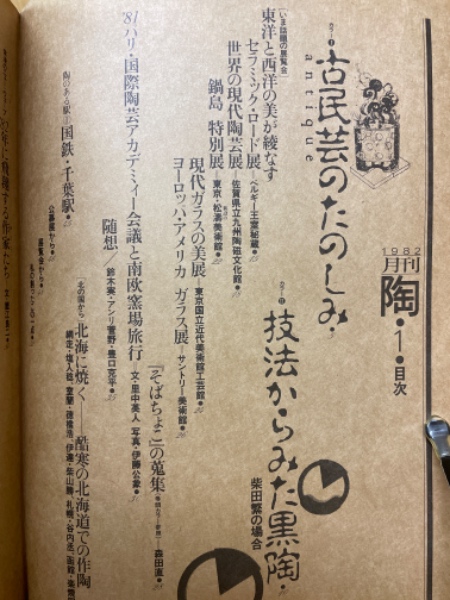 1982
月刊
陶・1・目次
カラー
古民芸のたのしみ・
antique
カラー
技法からみた黒陶・
柴田繁の場合
「いま話題の展覧会」
東洋と西洋の美が綾なす
セラミック・ロード展―ベルギー王室秘蔵●
世界の現代陶芸展―佐賀県立九州陶磁文化館●
鍋島 特別展―東京・松濤美術館●
現代ガラスの美展―東京国立近代美術館工芸館●
ヨーロッパ・アメリカ ガラス展―サントリー美術館●
『そばちょこ』の蒐集
森田直●
'81パリ・国際陶芸アカデミィー会議と南欧窯場旅行
文・里中英人 写真・伊藤公象●
随想/鈴木実・アンリ菅野・豊口克平●
陶のある駅
国鉄・千葉駅●
「北の国から」
北海に焼く――酷寒の北海道での作陶
公募展から●
展覧会から●